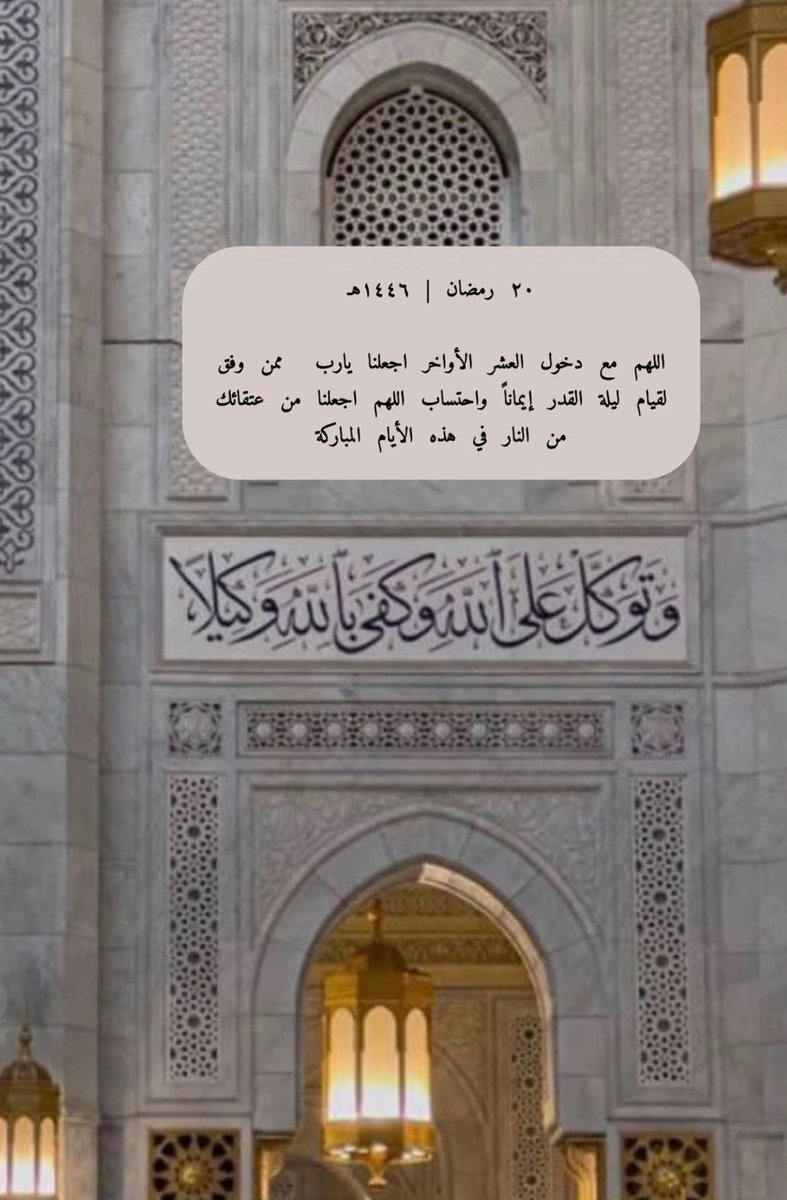 ٢٠ رمضان | ١٤٤٦هـ
اللهم مع دخول العشر الأواخر اجعلنا يارب ممن وفق
لقيام ليلة القدر إيماناً واحتساب اللهم اجعلنا من عتقائك
من النار في هذه الأيام المباركة
وَتَوَكَّلْ عَلَى ٱللَّهِ وَكَفَىٰ بِٱللَّهِ وَكِيلًا